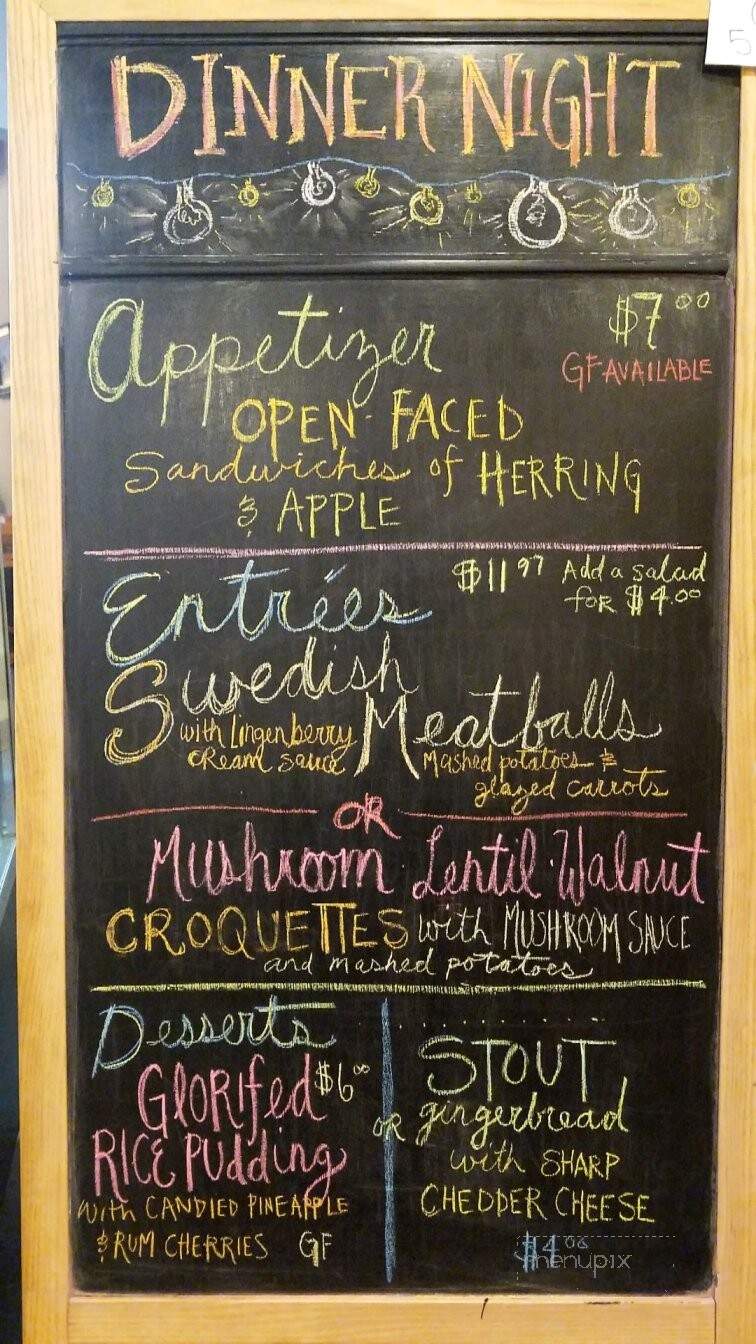 5
DINNER NIGHT
Appetizer $7.00
GF AVAILABLE
OPEN-FACED
Sandwiches of HERRING
& APPLE
Entrées $11.97 Add a salad
for $4.00
Swedish
Meatballs
with Lingenberry
cream sauce
Mashed potatoes &
glazed carrots
OR
Mushroom Lentil·Walnut
CROQUETTES with MUSHROOM SAUCE
and mashed potatoes
Desserts
GloRifed $6.00
RICE Pudding
with CANDIED PINEAPPLE
& RUM CHERRIES GF
OR
STOUT
gingerbread
with SHARP
CHEDDER CHEESE
menupix